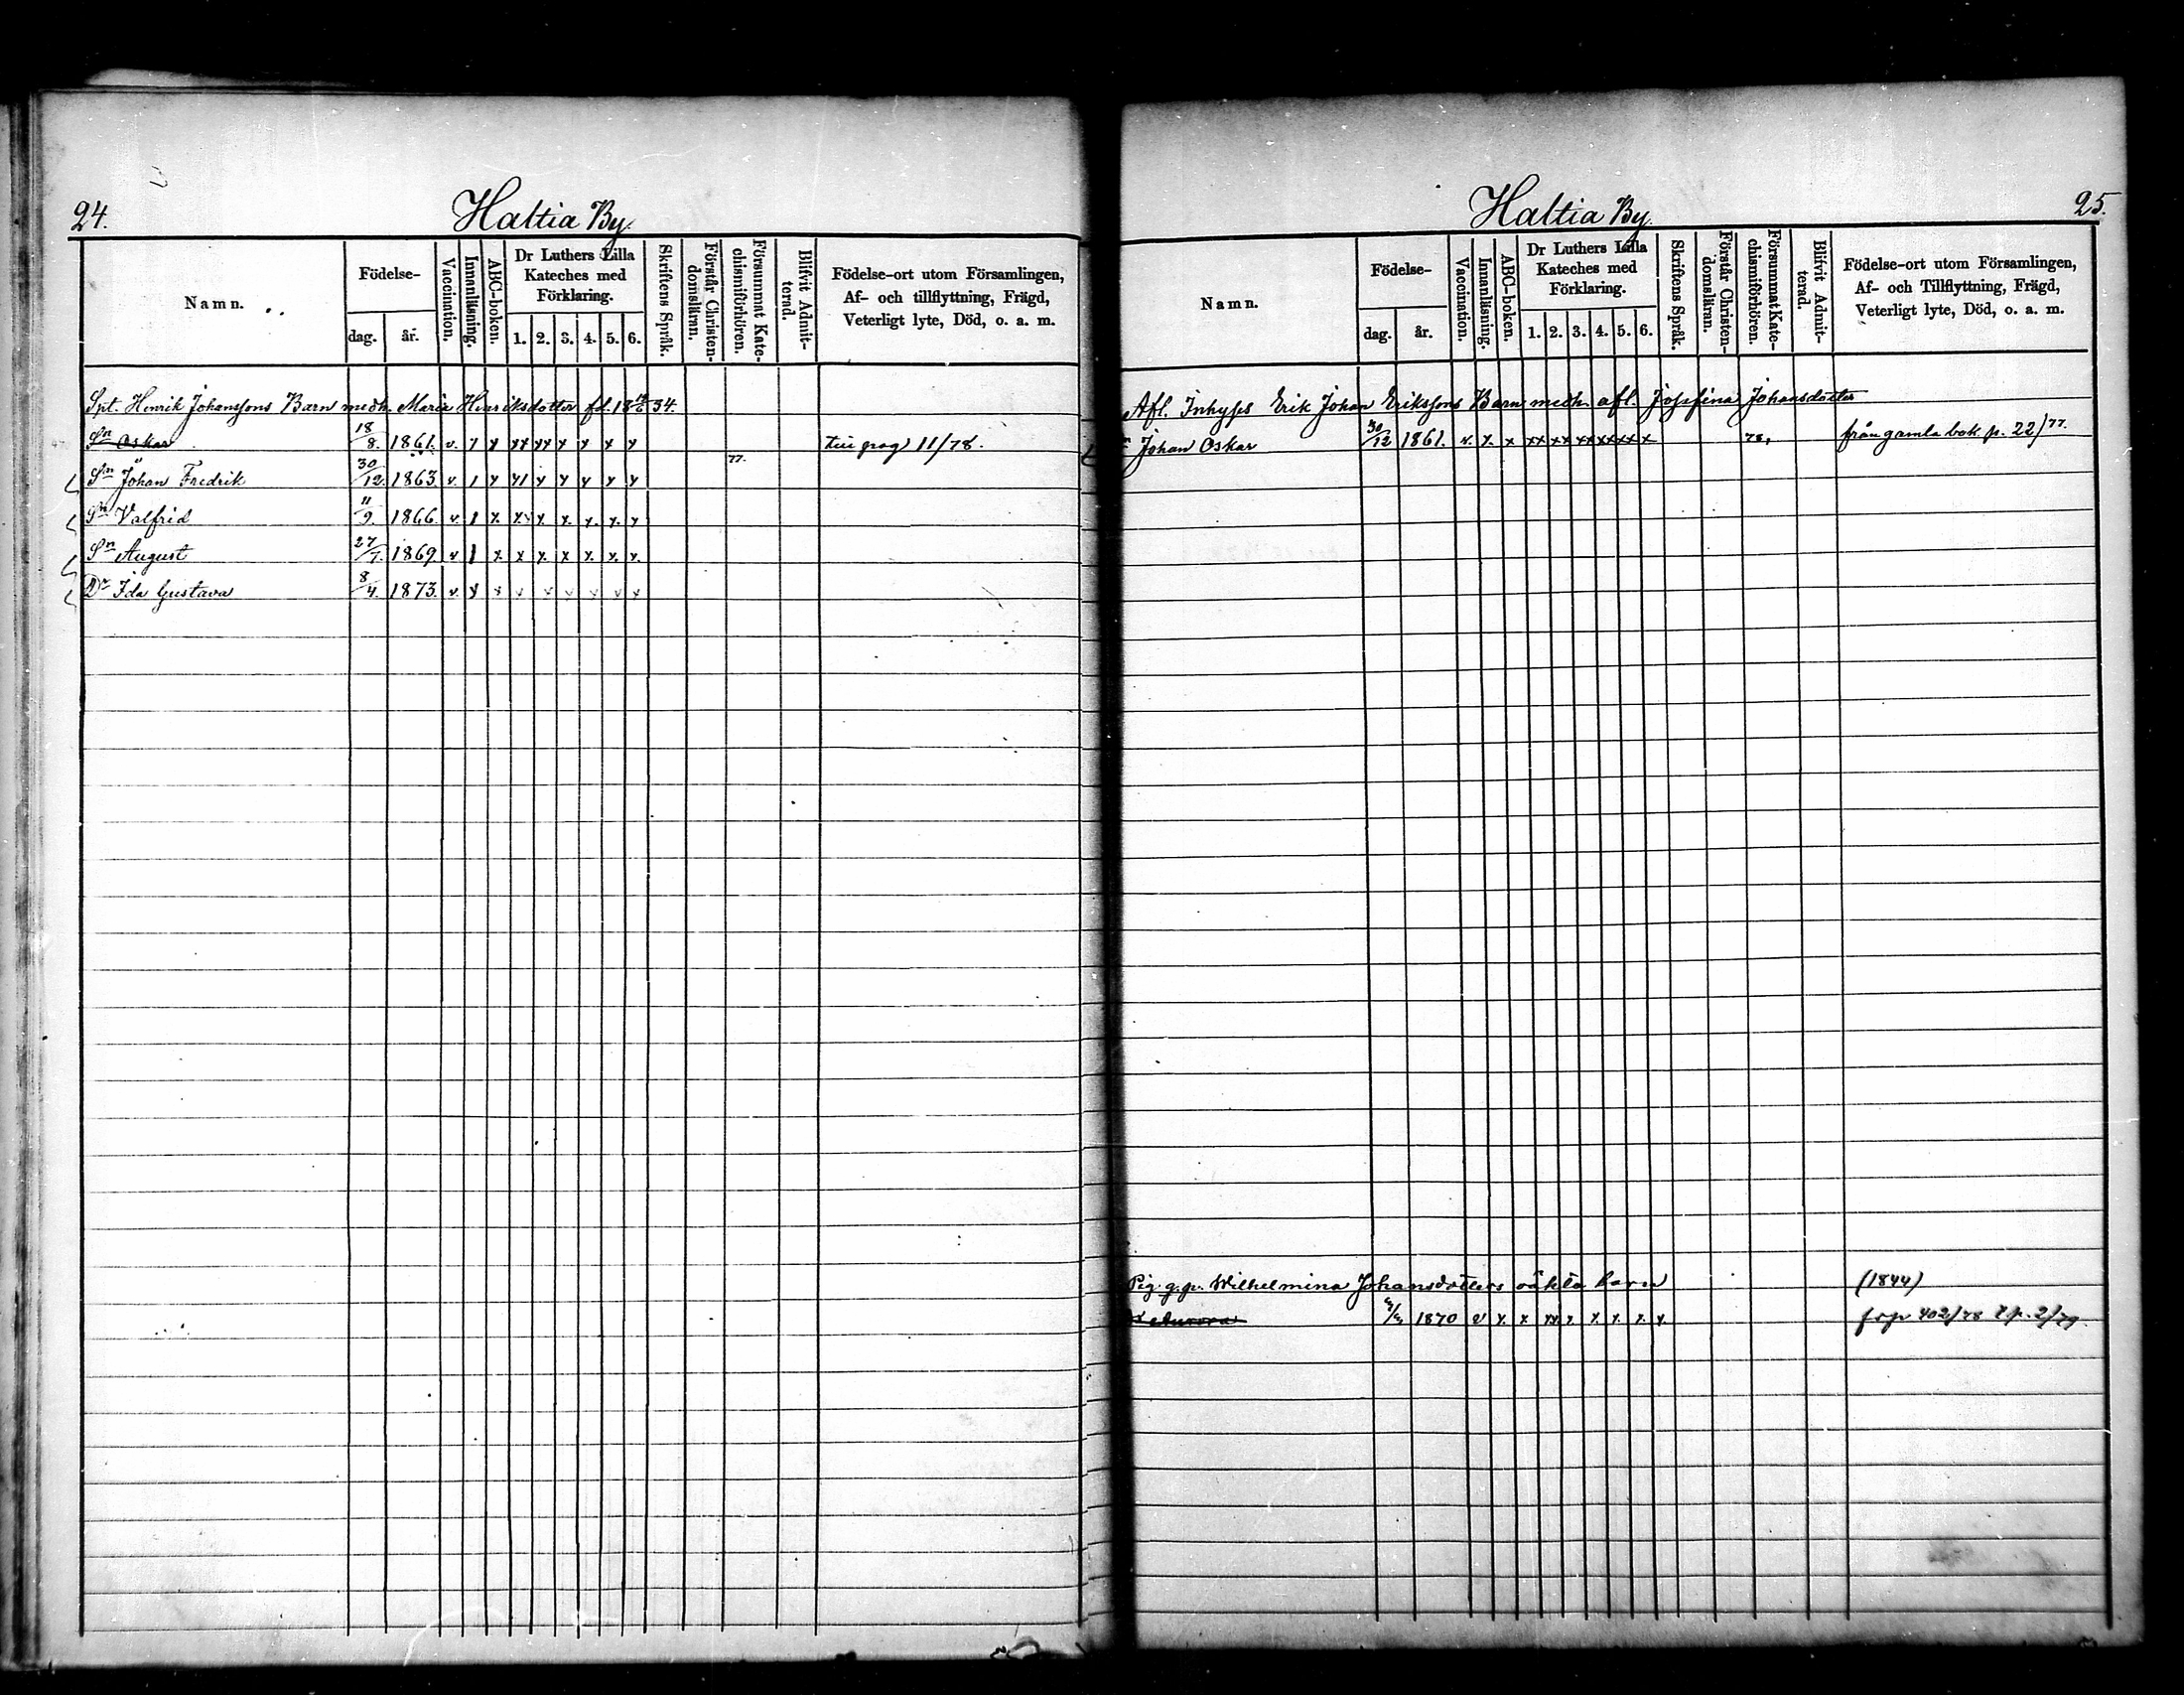 24.
Haltia By.
Namn.
Födelse-
dag.
år.
Vaccination.
Innanläsning.
ABC-boken.
Dr Luthers Lilla
Kateches med
Förklaring.
1. 2. 3. 4. 5. 6.
Skriftens Språk.
Förstår Christen-
domsläran.
Försummat Kate-
chismiförhören.
Blifvit Admit-
terad.
Födelse-ort utom Församlingen,
Af- och tillflyttning, Frägd,
Veterligt lyte, Död, o. a. m.
Spt. Henrik Johanssons Barn medh. Maria Henriksdotter fd. 18 34.
Sn Oskar 18/8. 1861. v. x x xx xx x x x x till pag 11/78.
Sn Johan Fredrik 30/12. 1863. v. 1 x x1 x x x x x 77.
Sn Valfrid 11/9. 1866. v. 1 x. x x x. x. x. x
Sn August 27/7. 1869. v 1 x x x. x x. x. x.
Dr Ida Gustava 8/4. 1873. v. x x v v v v v v
25.
Haltia By.
Namn.
Födelse-
dag.
år.
Vaccination.
Innanläsning.
ABC-boken.
Dr Luthers Lilla
Kateches med
Förklaring.
1. 2. 3. 4. 5. 6.
Skriftens Språk.
Förstår Christen-
domsläran.
Försummat Kate-
chismiförhören.
Blifvit Admit-
terad.
Födelse-ort utom Församlingen,
Af- och Tillflyttning, Frägd,
Veterligt lyte, Död, o. a. m.
Afl. Inhyses Erik Johan Erikssons Barn medh. afl. Josefina Johansdotter
Johan Oskar 30/12 1861. v. x. x xx xx xx xx xx x 78, från gamla bok. p. 22/77.
Pig. g.p. Wilhelmina Johansdotters oäkta barn (1844)
Aurora 1870 v x. x xx x. x. x. x. x. frp 402/78 tp. 2/79.